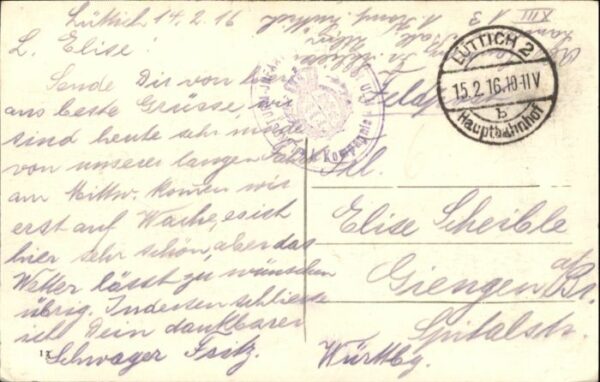 Lüttich 14.2.16
L. Elise!
Sende Dir von hier
aus beste Grüsse, wir
sind heute sehr müde
von unserer langen Fahrt
am Mittw. komen wir
erst auf Wache, es ist
hier sehr schön, aber das
Wetter lässt zu wünschen
übrig. Indessen schliesst
ich Dein dankbarer
Schwager Fritz.
1X
XIII
LÜTTICH 2
15.2.16.10-11V
b
Hauptbahnhof
Kompagnie
Feldpost
Frl.
Elise Scheible
Giengen a/Br.
Spitalstr.
Württbg.